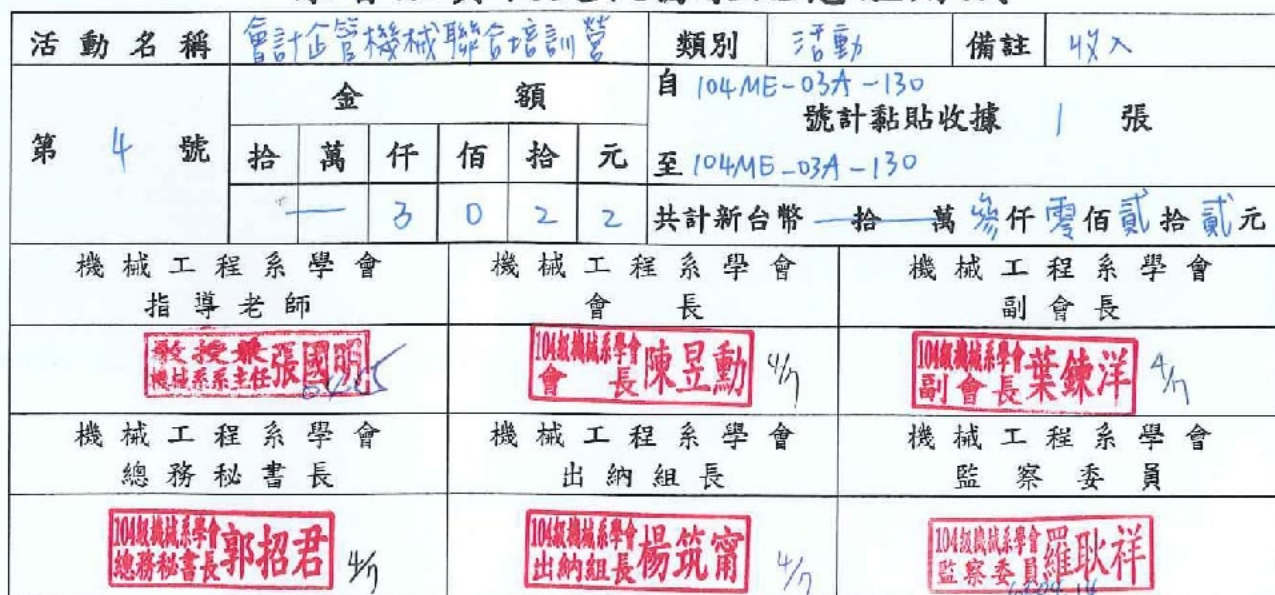 活動名稱 會計企管機械聯合培訓營 類別 活動 備註 收入
第 4 號
金額
拾 萬 仟 佰 拾 元
— 3 0 2 2
自 104ME-03A-130
號計黏貼收據 1 張
至 104ME-03A-130
共計新台幣 拾 萬 參仟零佰貳拾貳元
機械工程系學會
指導老師
機械工程系學會
會長
機械工程系學會
副會長
教授兼
機械系系主任 張國明
104級機械系學會
會長 陳昱勳 4/7
104級機械系學會
副會長 葉鍊洋 4/7
機械工程系學會
總務秘書長
機械工程系學會
出納組長
機械工程系學會
監察委員
104級機械系學會
總務秘書長 郭招君 4/7
104級機械系學會
出納組長 楊筑甯 4/7
104級機械系學會
監察委員 羅耿祥